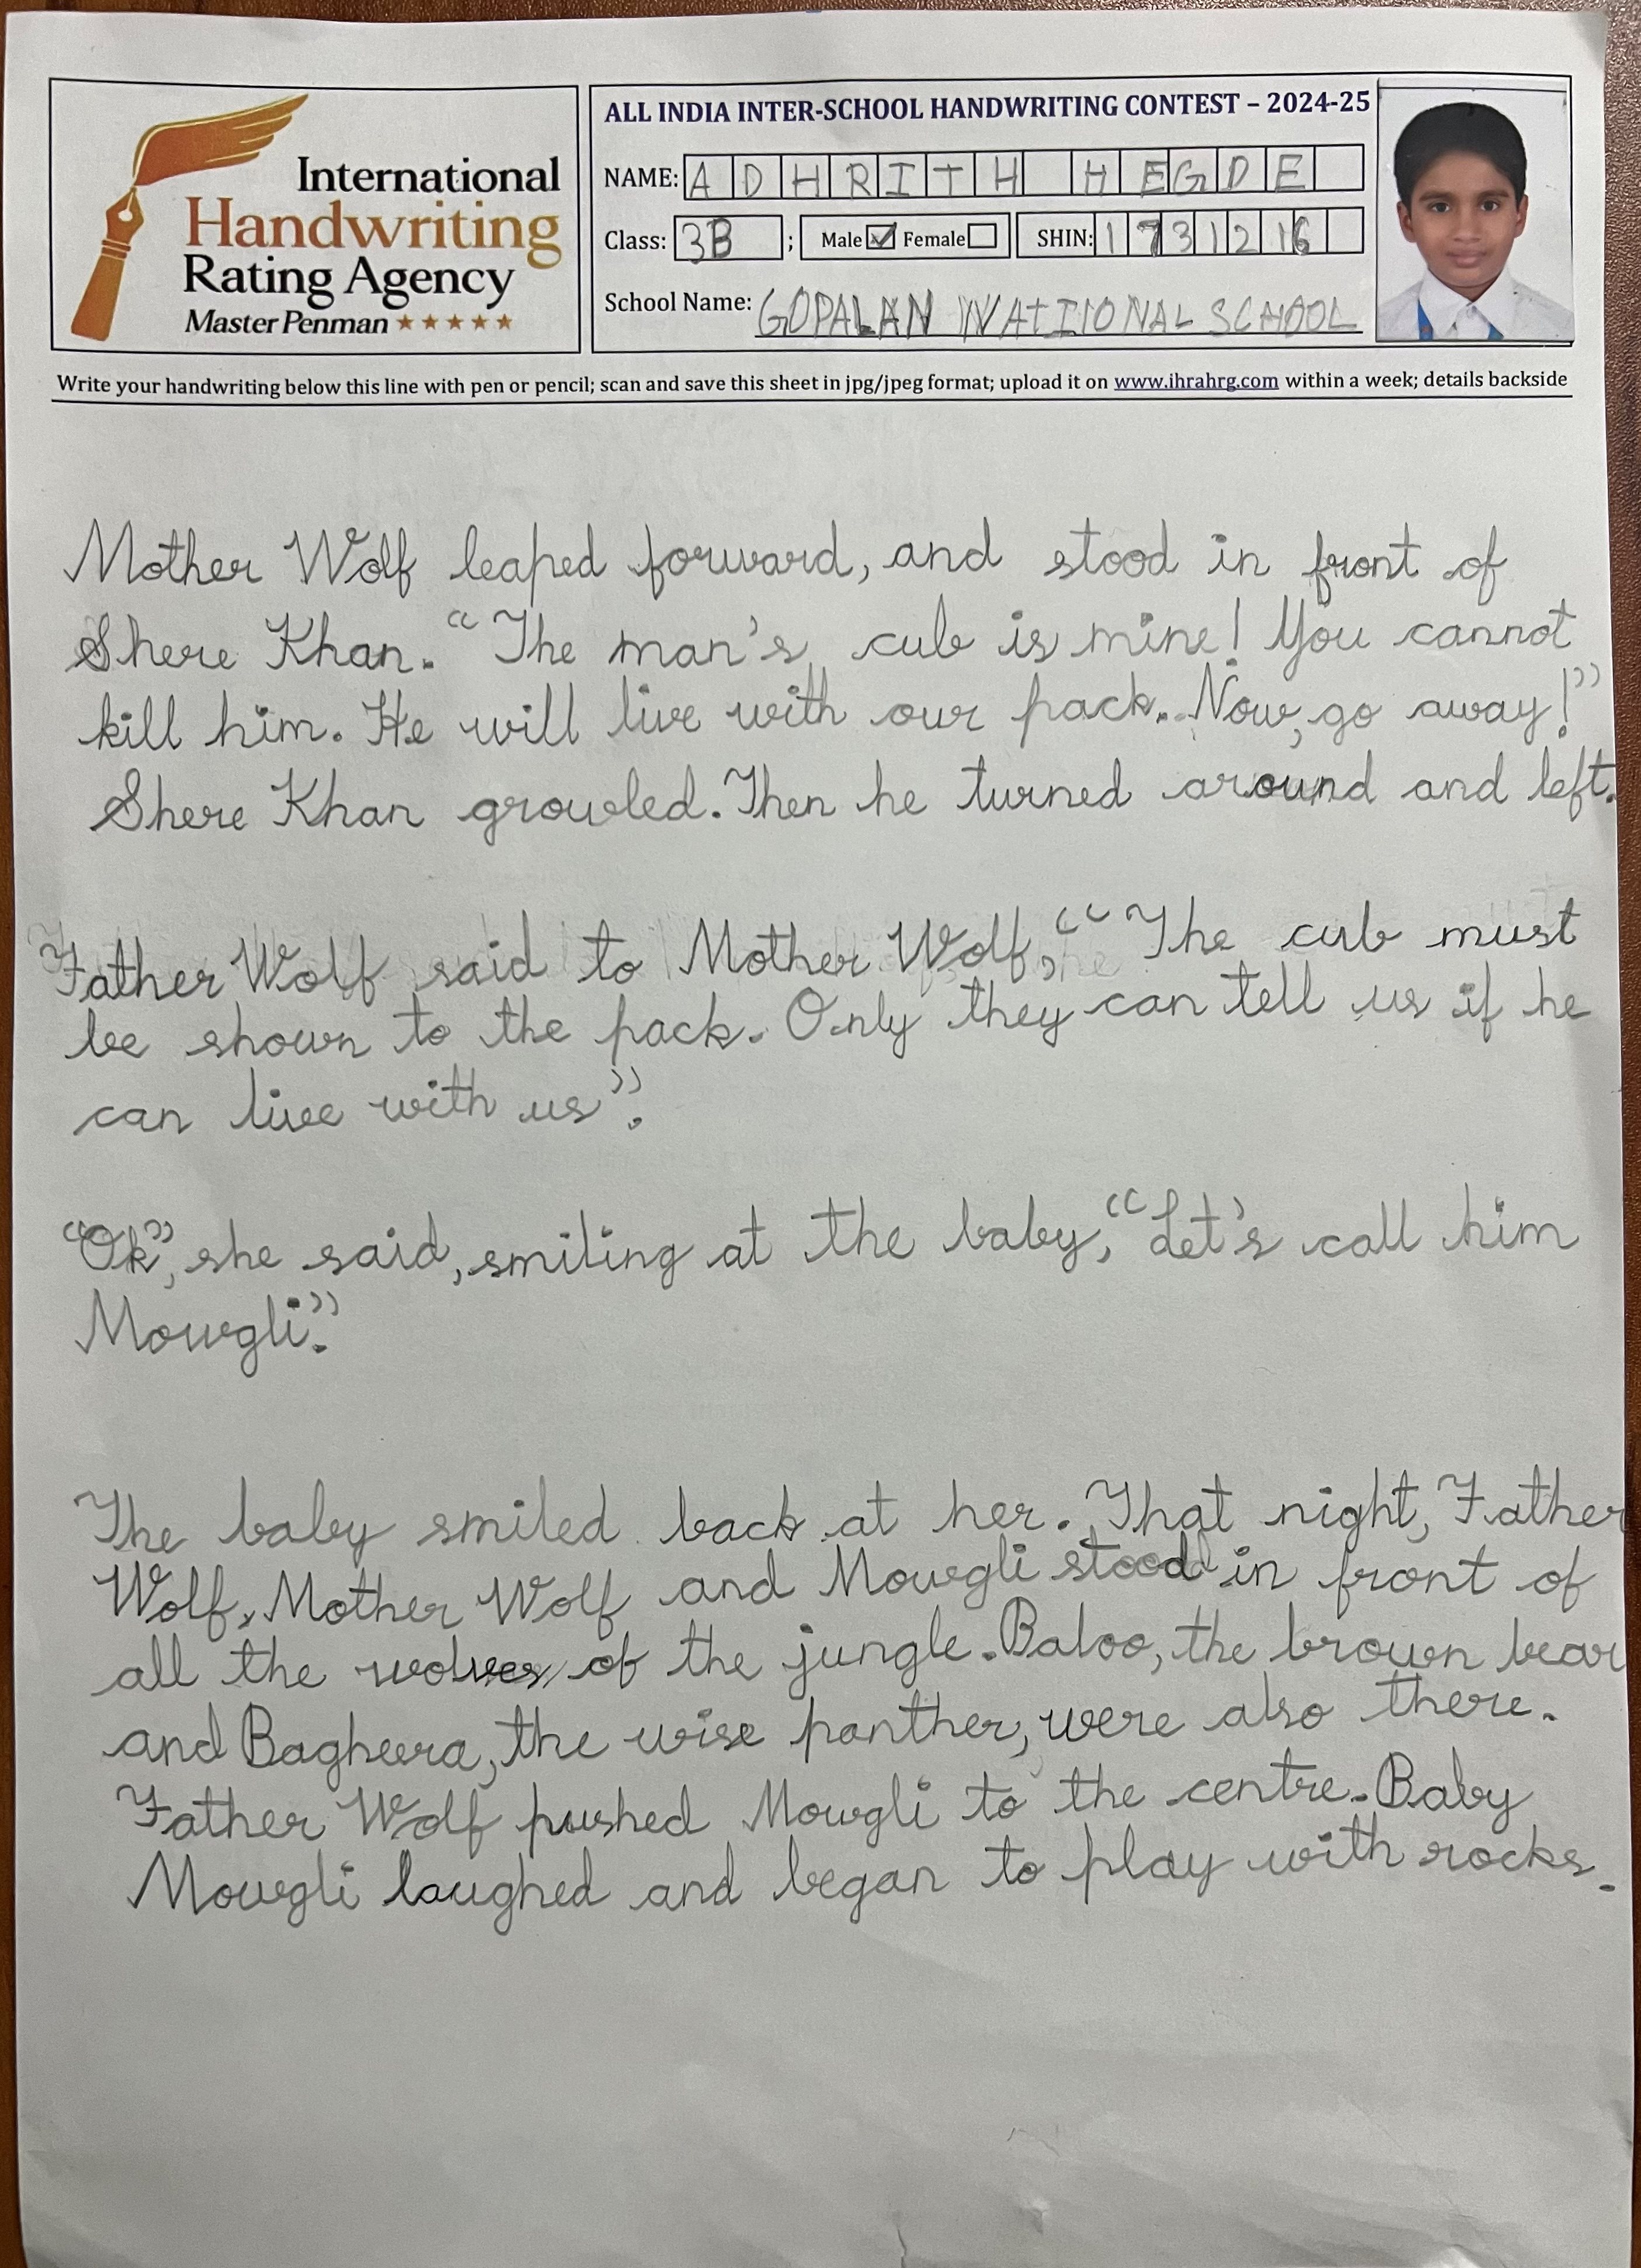 International
Handwriting
Rating Agency
Master Penman ★★★★★
ALL INDIA INTER-SCHOOL HANDWRITING CONTEST – 2024-25
NAME: ADHRITH HEGDE
Class: 3B ; Male ☑ Female ☐ SHIN: 1731216
School Name: GOPALAN NATIONAL SCHOOL
Write your handwriting below this line with pen or pencil; scan and save this sheet in jpg/jpeg format; upload it on www.ihrahrg.com within a week; details backside
Mother Wolf leaped forward, and stood in front of
Shere Khan. “The man's cub is mine! You cannot
kill him. He will live with our pack. Now, go away!”
Shere Khan growled. Then he turned around and left.
Father Wolf said to Mother Wolf, “The cub must
be shown to the pack. Only they can tell us if he
can live with us”.
“Ok”, she said, smiling at the baby, “Let's call him
Mowgli.”
The baby smiled back at her. That night, Father
Wolf, Mother Wolf and Mowgli stood in front of
all the wolves of the jungle. Baloo, the brown bear
and Bagheera, the wise panther, were also there.
Father Wolf pushed Mowgli to the centre. Baby
Mowgli laughed and began to play with rocks.